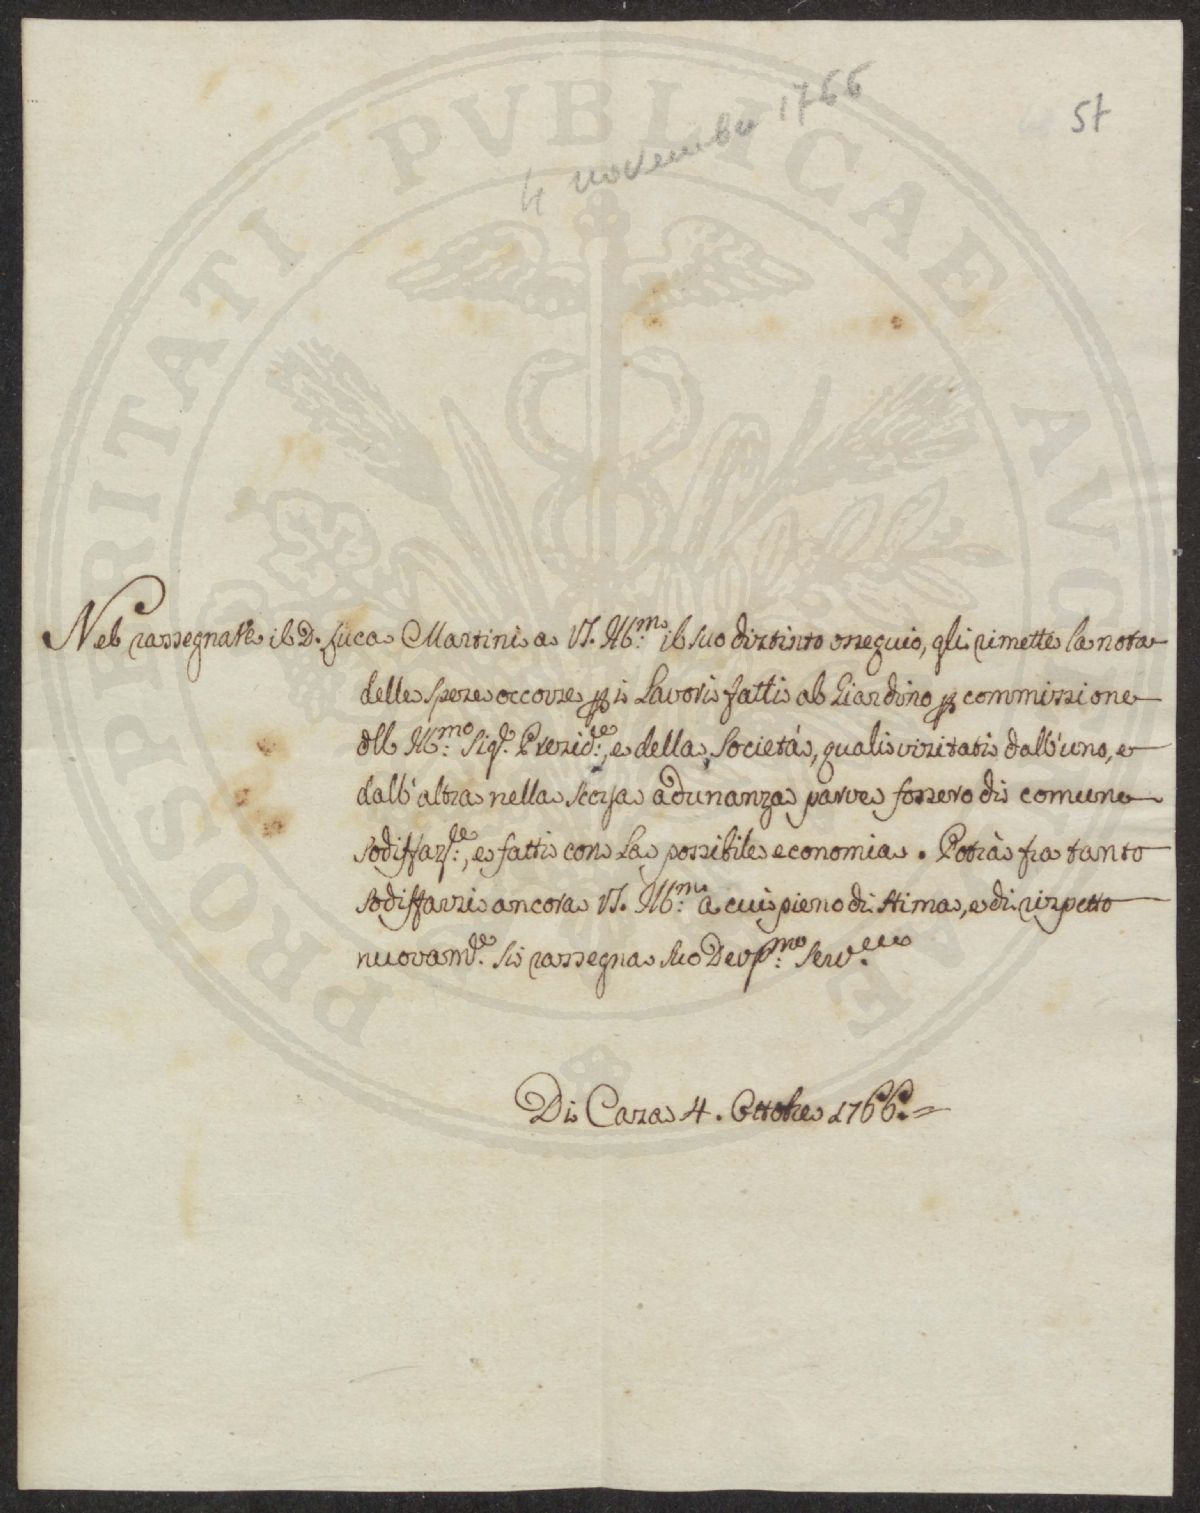 PROSPERITATI PVBLICAE AVGENDAE
4 novembre 1766
51
Nel rassegnare il D. Luca Martini a VS. Ill.m il suo distinto ossequio, gli rimette la nota
delle spese occorse p i Lavori fatti al Giardino p commissione
dll Ill.mo Sig.r Presid.te, e della Società, quali visitati dall'uno, e
dall'altra nella scorsa adunanza parve fossero di comune
sodisfaz.e, e fatti con la possibile economia. Potrà fra tanto
sodisfarsi ancora VS. Ill.m a cui pieno di stima, e di rispetto
nuovam.te si rassegna suo Dev.mo Serv.e
Di Casa 4. Ottobre 1766.=